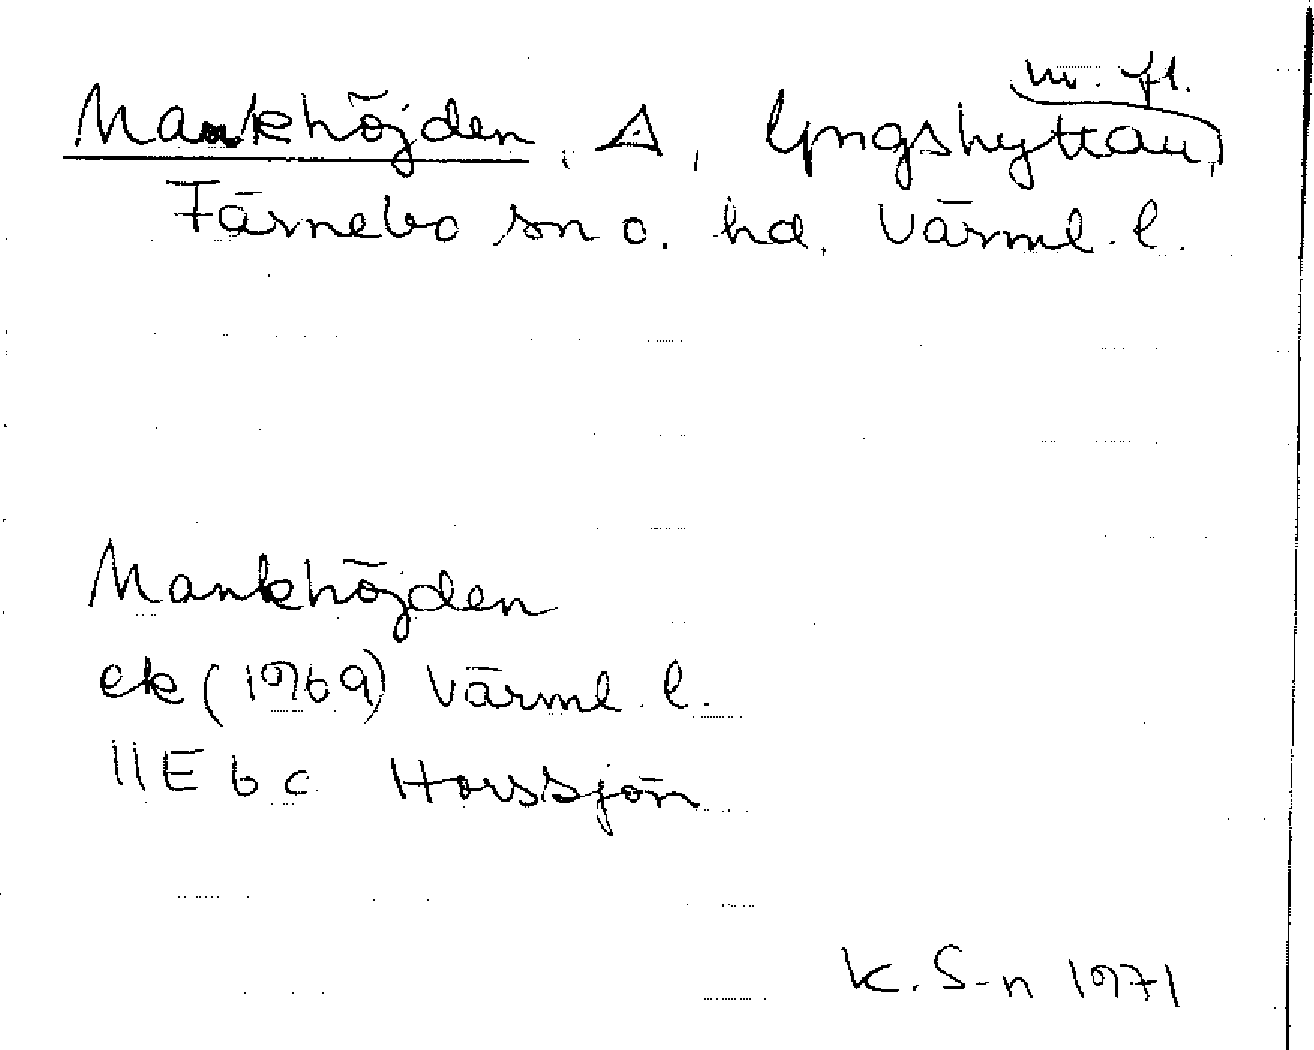 Mankhöjden, A, Yngshyttan, m. fl.
Färnebo sn o. hd. Värml. l.
Mankhöjden
ek (1969) Värml. l.
11E b c Horssjön
K. S-n 1971